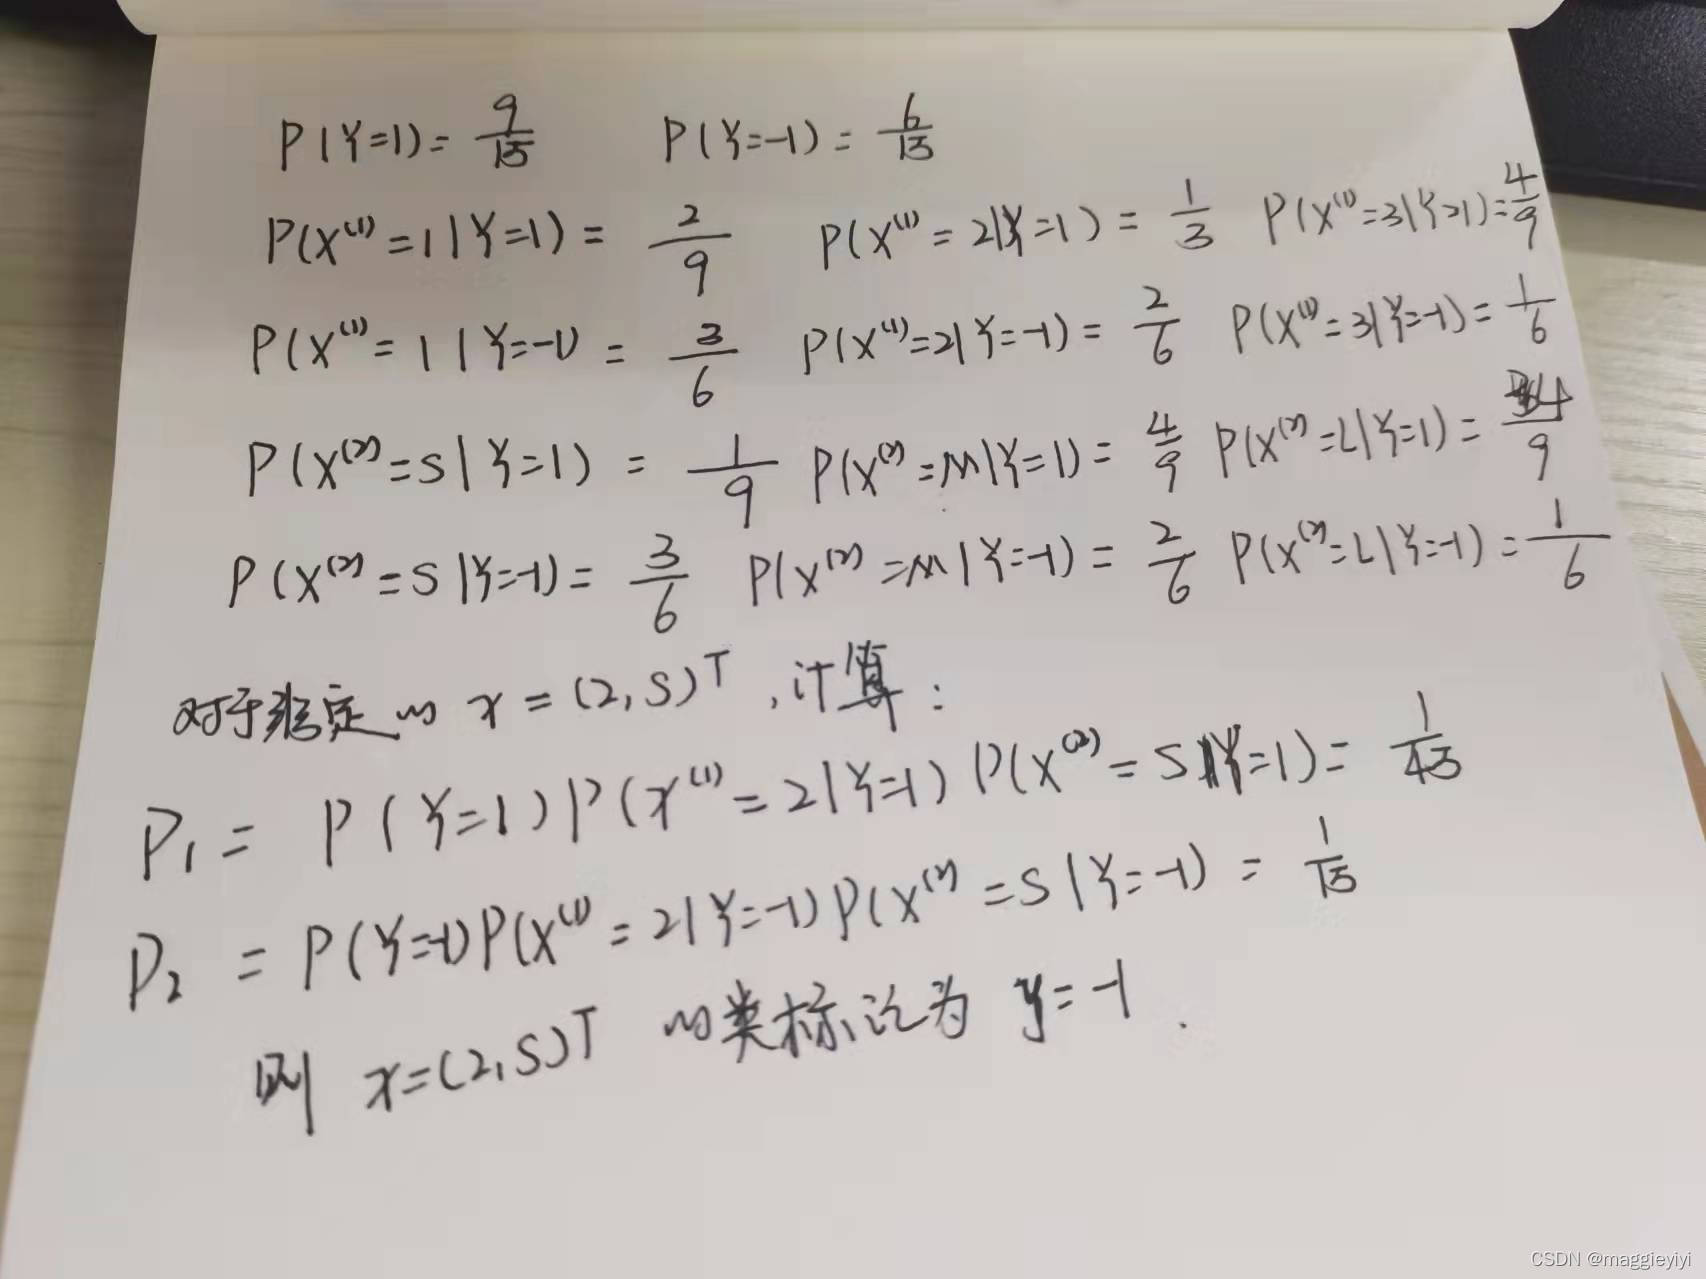 P(Y=1) = 9/15 P(Y=-1) = 6/15
P(X^(1)=1|Y=1) = 2/9 P(X^(1)=2|Y=1) = 1/3 P(X^(1)=3|Y=1)=4/9
P(X^(1)=1|Y=-1) = 3/6 P(X^(1)=2|Y=-1) = 2/6 P(X^(1)=3|Y=-1)=1/6
P(X^(2)=S|Y=1) = 1/9 P(X^(2)=M|Y=1)=4/9 P(X^(2)=L|Y=1)=4/9
P(X^(2)=S|Y=-1)=3/6 P(X^(2)=M|Y=-1)=2/6 P(X^(2)=L|Y=-1)=1/6
对于给定的 x=(2,S)^T,计算:
P₁ = P(Y=1)P(x^(1)=2|Y=1)P(X^(2)=S|Y=1)=1/45
P₂ = P(Y=-1)P(X^(1)=2|Y=-1)P(X^(2)=S|Y=-1) = 1/15
则 x=(2,S)^T 的类标记为 y=-1.
CSDN @maggieyiyi